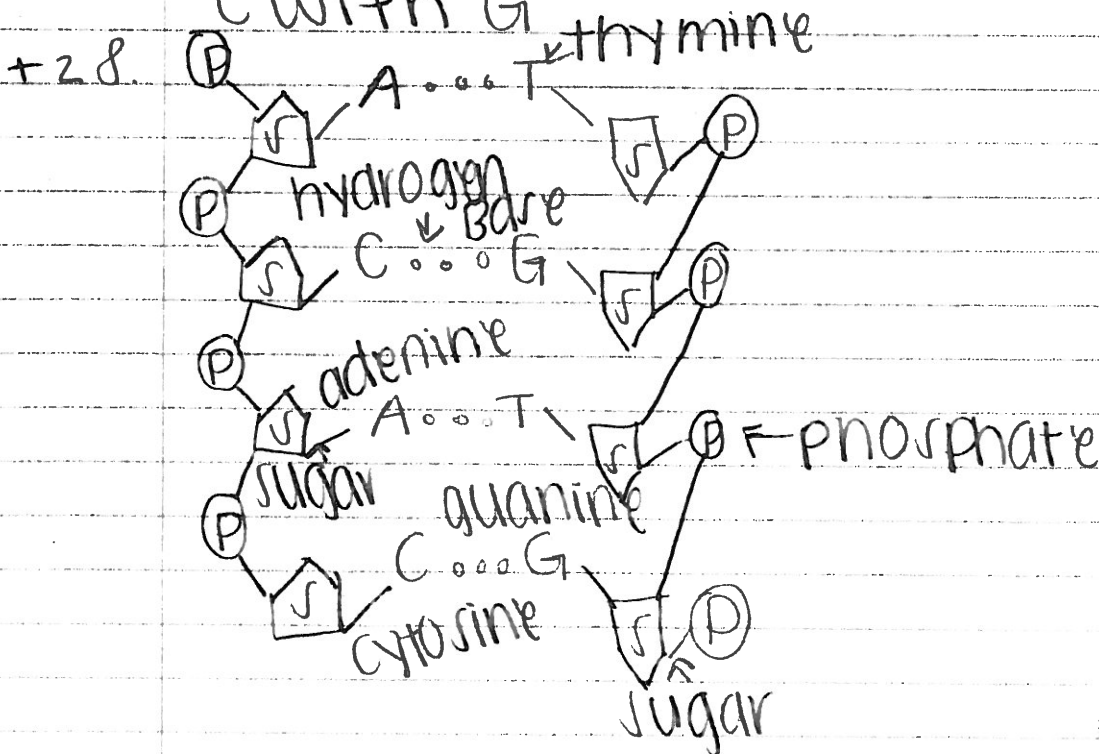 C with G
+28.
P
thymine
A...T
S
S
P
hydrogen
Base
P
C...G
S
S
P
adenine
P
A...T
S
S
P
phosphate
sugar
guanine
P
C...G
S
S
P
cytosine
sugar